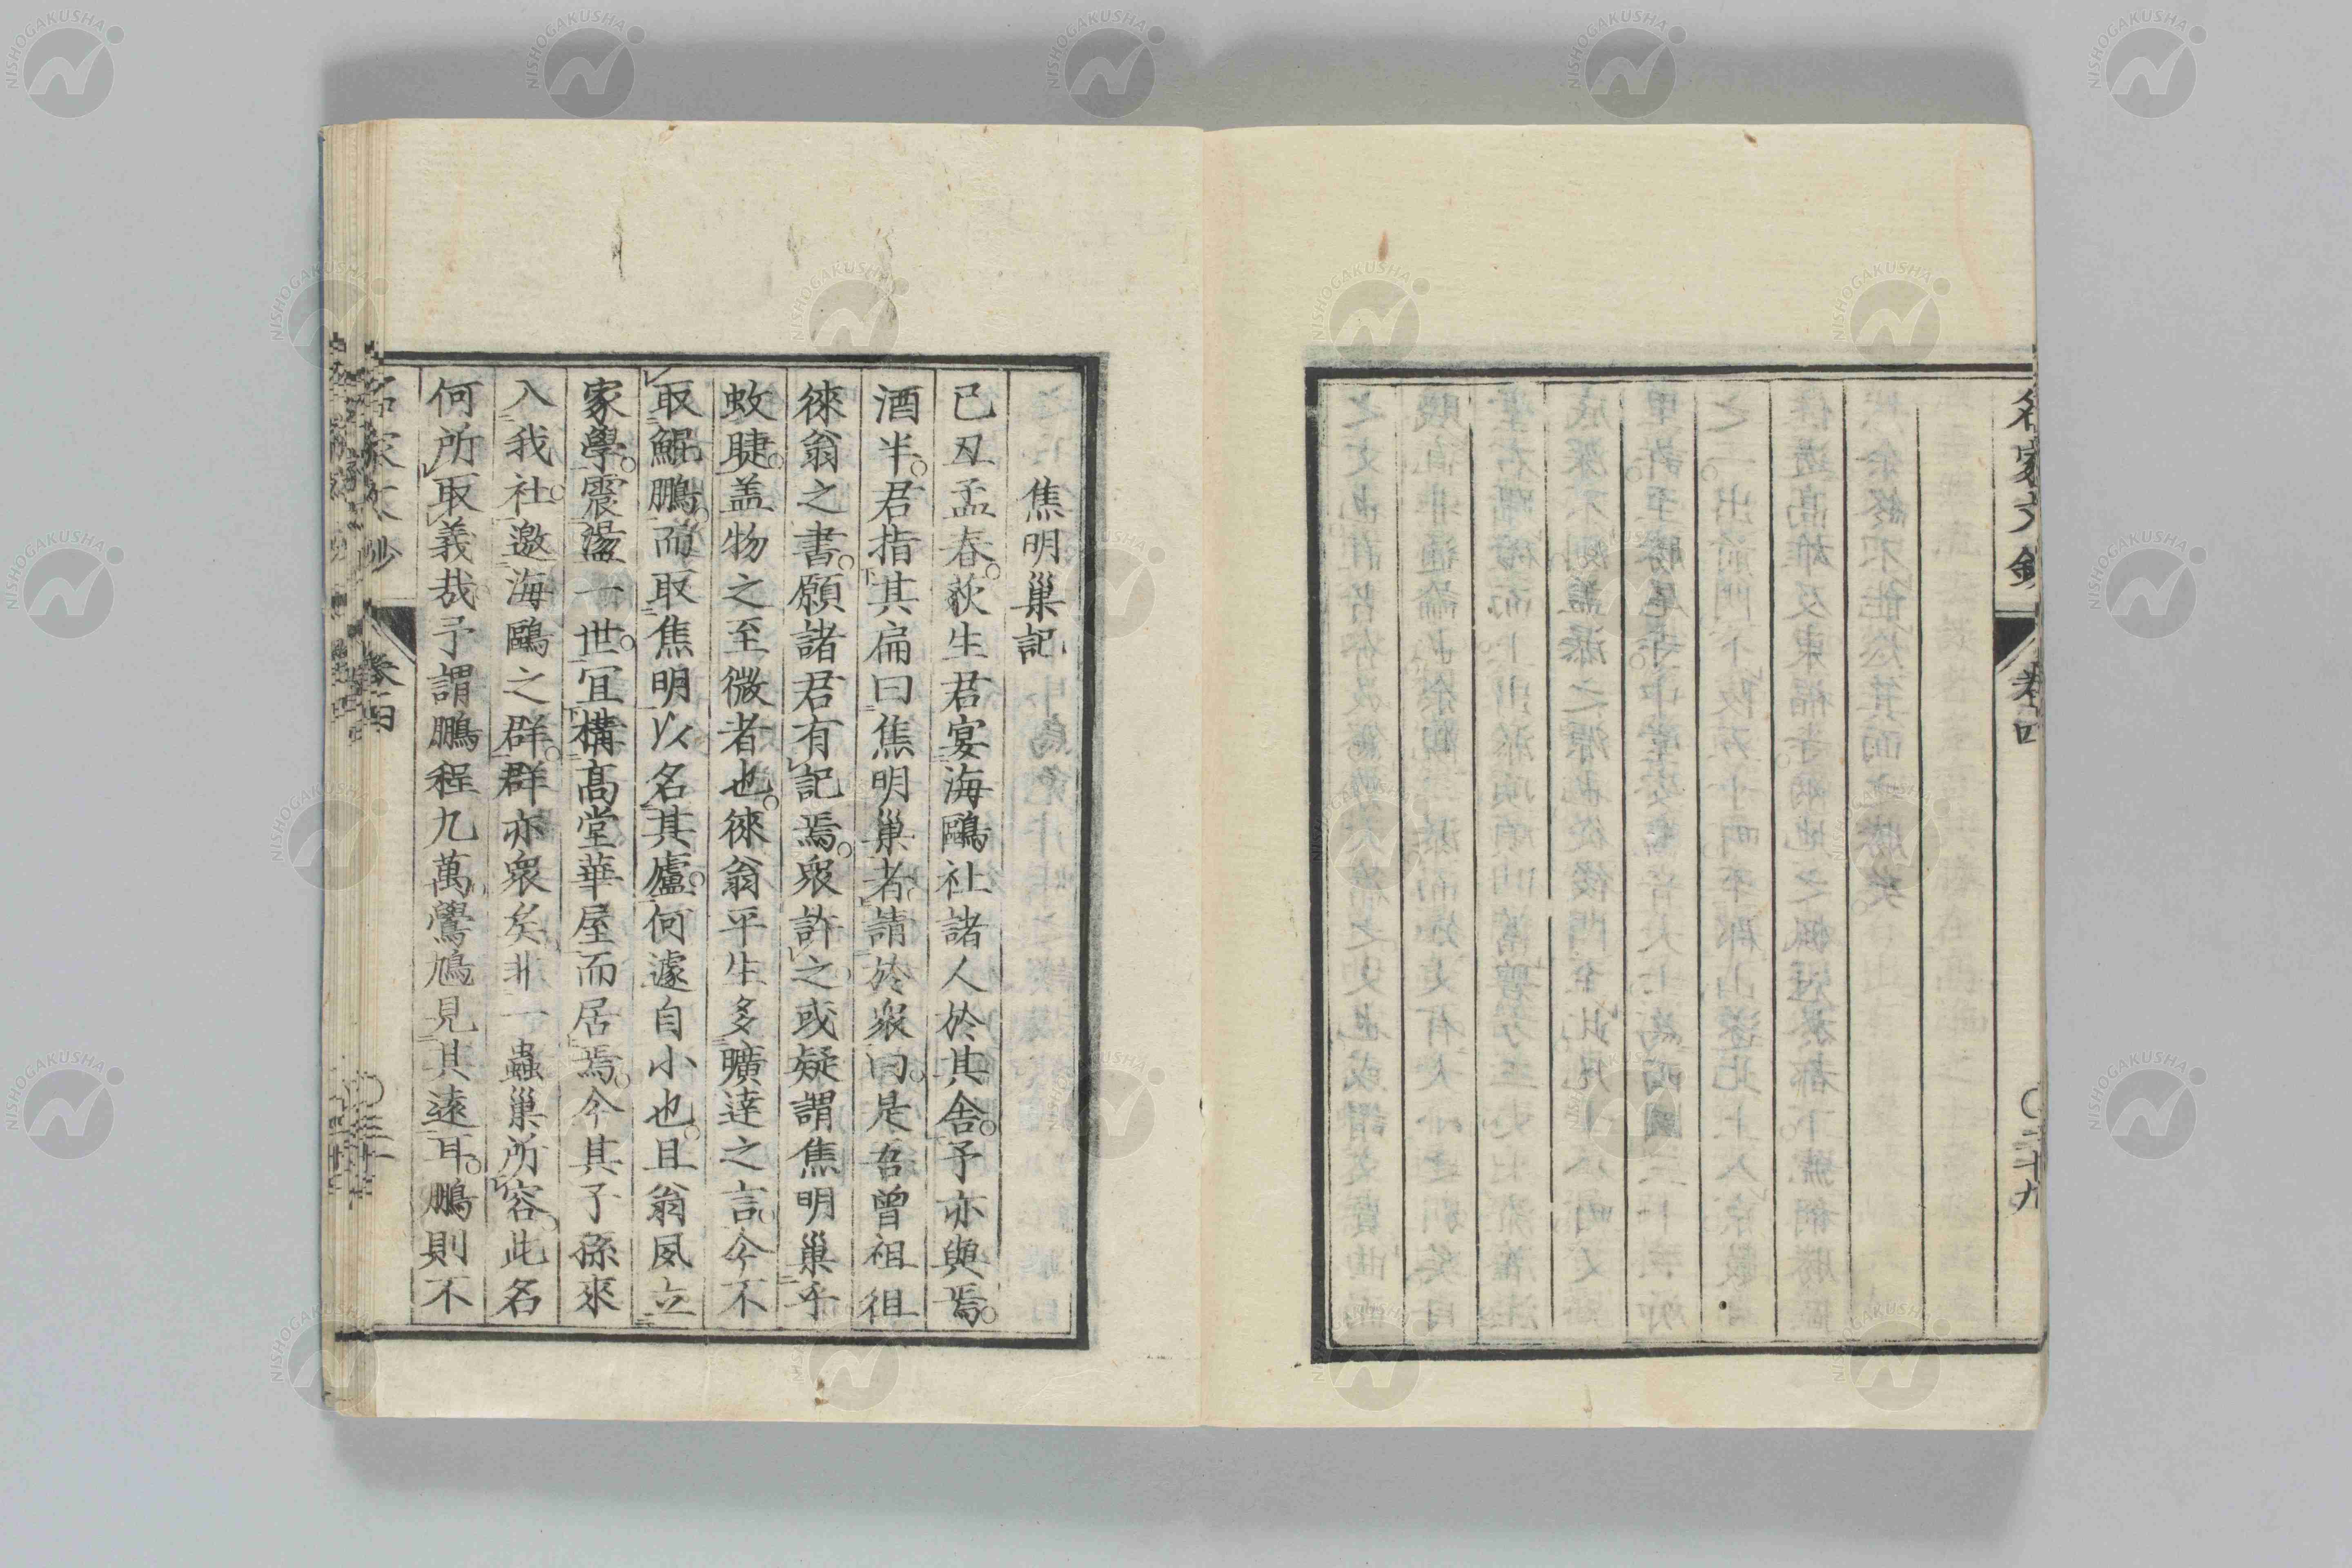 名家文鈔
卷四
〇二十九
焦明巢記
己丑孟春。荻生君宴海鷗社諸人於其舍。予亦與焉。
酒半。君指其扁曰焦明巢者。請於衆曰。是吾曾祖徂
徠翁之書。願諸君有記焉。衆許之或疑謂焦明巢乎
蚊睫。盖物之至微者也。徠翁平生多曠達之言。今不
取鯤鵬。而取焦明以名其廬。何遽自小也。且翁夙立
家學。震盪一世。宜構高堂華屋而居焉。今其子孫來
入我社。邀海鷗之群。群亦衆矣非一蟲巢所容。此名
何所取義哉予謂鵬程九萬鷽鳩見其遠耳。鵬則不
名家文鈔
卷四
〇三十
NISHOGAKUSHA